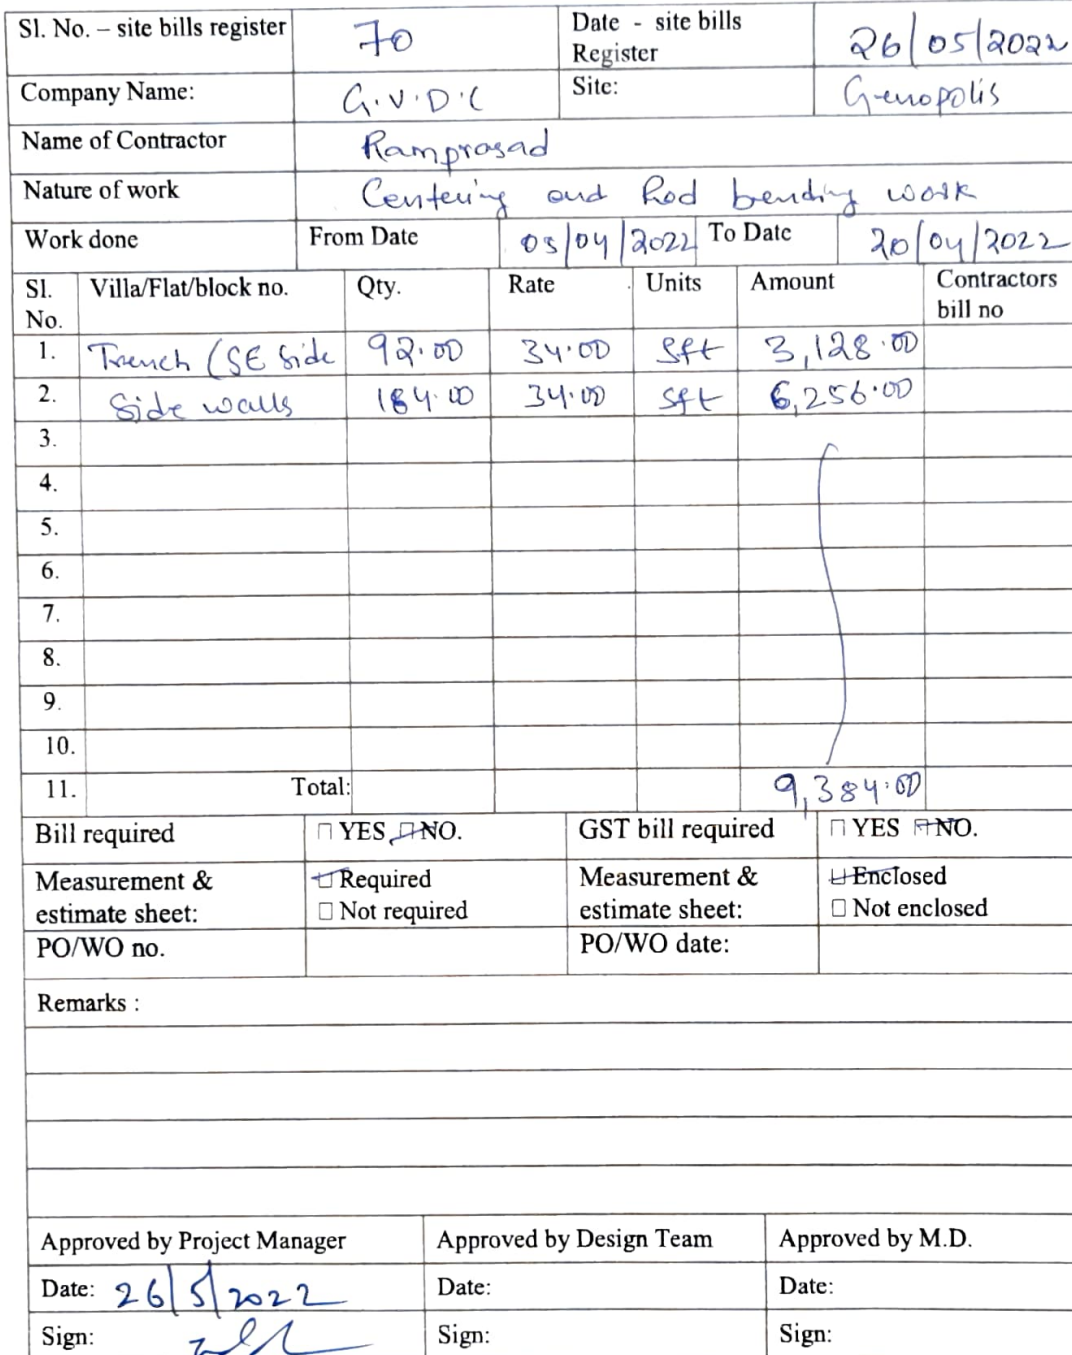 Sl. No. – site bills register 70 Date - site bills Register 26/05/2022
Company Name: G.V.D.C Site: Genopolis
Name of Contractor Ramprasad
Nature of work Centering and Rod bending work
Work done From Date 03/04/2022 To Date 20/04/2022
Sl. No. Villa/Flat/block no. Qty. Rate Units Amount Contractors bill no
1. Trench (SE Side 92.00 34.00 Sft 3,128.00
2. Side walls 184.00 34.00 Sft 6,256.00
3.
4.
5.
6.
7.
8.
9.
10.
11. Total: 9,384.00
Bill required □ YES □ NO. GST bill required □ YES □ NO.
Measurement & estimate sheet: □ Required □ Not required Measurement & estimate sheet: □ Enclosed □ Not enclosed
PO/WO no. PO/WO date:
Remarks :
Approved by Project Manager Approved by Design Team Approved by M.D.
Date: 26/5/2022 Date: Date:
Sign: Sign: Sign: